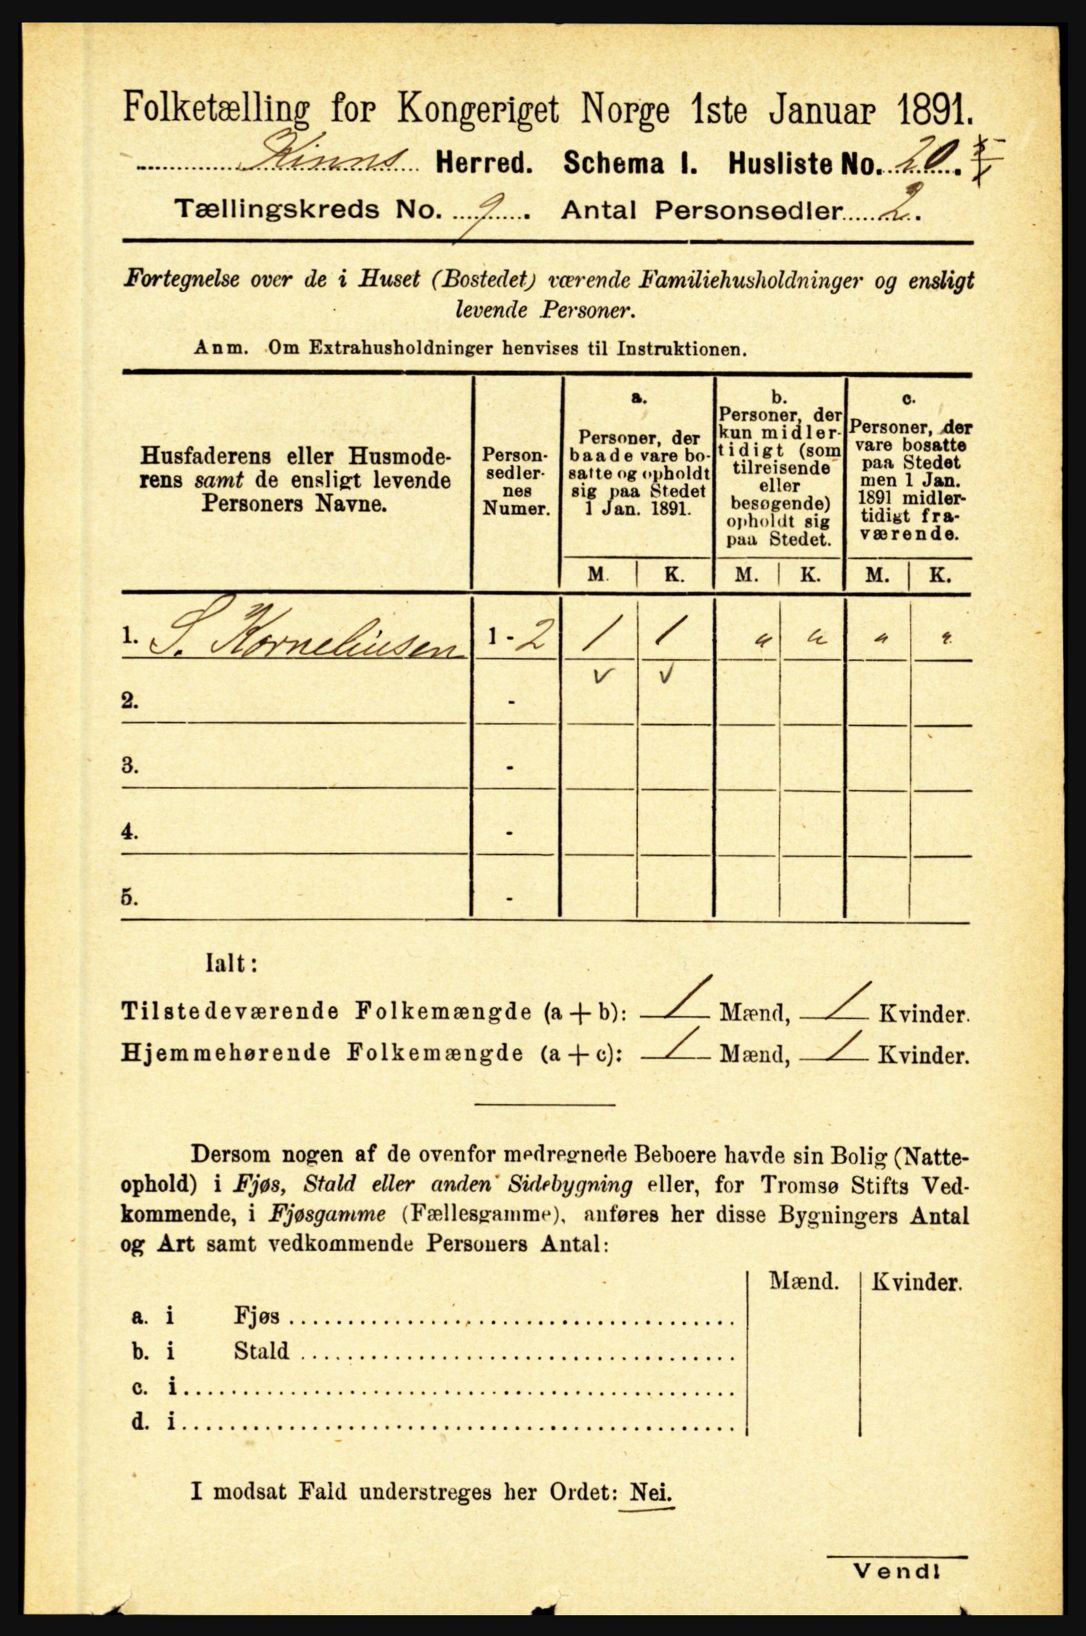 Folketælling for Kongeriget Norge 1ste Januar 1891.
Kinns Herred. Schema I. Husliste No. 20.
Tællingskreds No. 9. Antal Personsedler 2.
Fortegnelse over de i Huset (Bostedet) værende Familiehusholdninger og ensligt
levende Personer.
Anm. Om Extrahusholdninger henvises til Instruktionen.
Husfaderens eller Husmode-
rens samt de ensligt levende
Personers Navne.
Person-
sedler-
nes
Numer.
a.
Personer, der
baade vare bo-
satte og opholdt
sig paa Stedet
1 Jan. 1891.
b.
Personer, der
kun midler-
tidigt (som
tilreisende
eller
besøgende)
opholdt sig
paa Stedet.
c.
Personer, der
vare bosatte
paa Stedet
men 1 Jan.
1891 midler-
tidigt fra-
værende.
M. K. M. K. M. K.
1. S. Korneliusen 1 - 2 1 1 " " " "
v v
2. -
3. -
4. -
5. -
Ialt:
Tilstedeværende Folkemængde (a + b): 1 Mænd, 1 Kvinder.
Hjemmehørende Folkemængde (a + c): 1 Mænd, 1 Kvinder.
Dersom nogen af de ovenfor medregnede Beboere havde sin Bolig (Natte-
ophold) i Fjøs, Stald eller anden Sidebygning eller, for Tromsø Stifts Ved-
kommende, i Fjøsgamme (Fællesgamme), anføres her disse Bygningers Antal
og Art samt vedkommende Personers Antal:
Mænd. Kvinder.
a. i Fjøs
b. i Stald
c. i
d. i
I modsat Fald understreges her Ordet: Nei.
Vend!